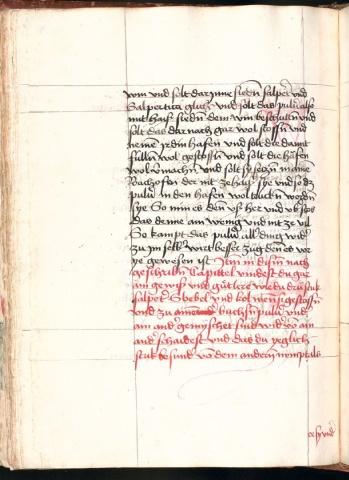 win vnd solt dar jnne sieden salpeter vnd
Salpertica glich vnd solt das puluer also
mit haiß sieden dem win beschuten vnd
solt das dar nach gar wol stossen vnd
neme jrdin hafen vnd solt die damit
fullen wol gestossen vnd solt die hafen
wol vermachen vnd solt sy seczen in ainen
Bachofen der nit ze haiß sye vnd so daz
puluer in den hafen wol truken worden
sye So nim es dan vß her vnd ob sin
das denne ain wenig vnd nit ze vil
So kumpt das puluer all ding wider
zu im selber wirt besser zug den es vor
ye gewesen ist Item in disem nach
geschriben Cappittel vindest du gar
ain gewiß vnd gut lere wie du drü stuk
salpeter Schebel vnd kol wenn gestossen
vnd zu buchsen puluer vnder
ain ander gemyschet sind wider von ain
ander schaidest vnd das du yeglich
stuk besunder von dem andern nympst als